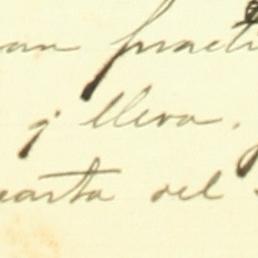 an practi
q' lleva.
carta del